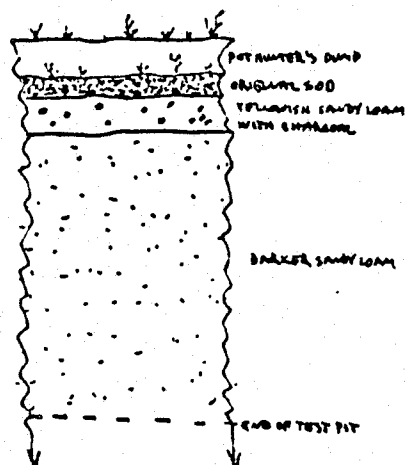 POTHUNTER'S DUMP
ORIGINAL SOD
YELLOWISH SANDY LOAM
WITH CHARCOAL
DARKER SANDY LOAM
END OF TEST PIT